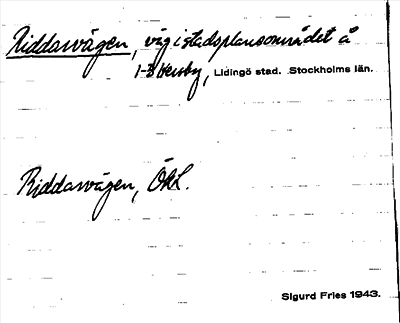 Riddarvägen, väg i stadsplaneområdet å
1-3 Hersby, Lidingö stad. Stockholms län.
Riddarvägen, ÖAL.
Sigurd Fries 1943.